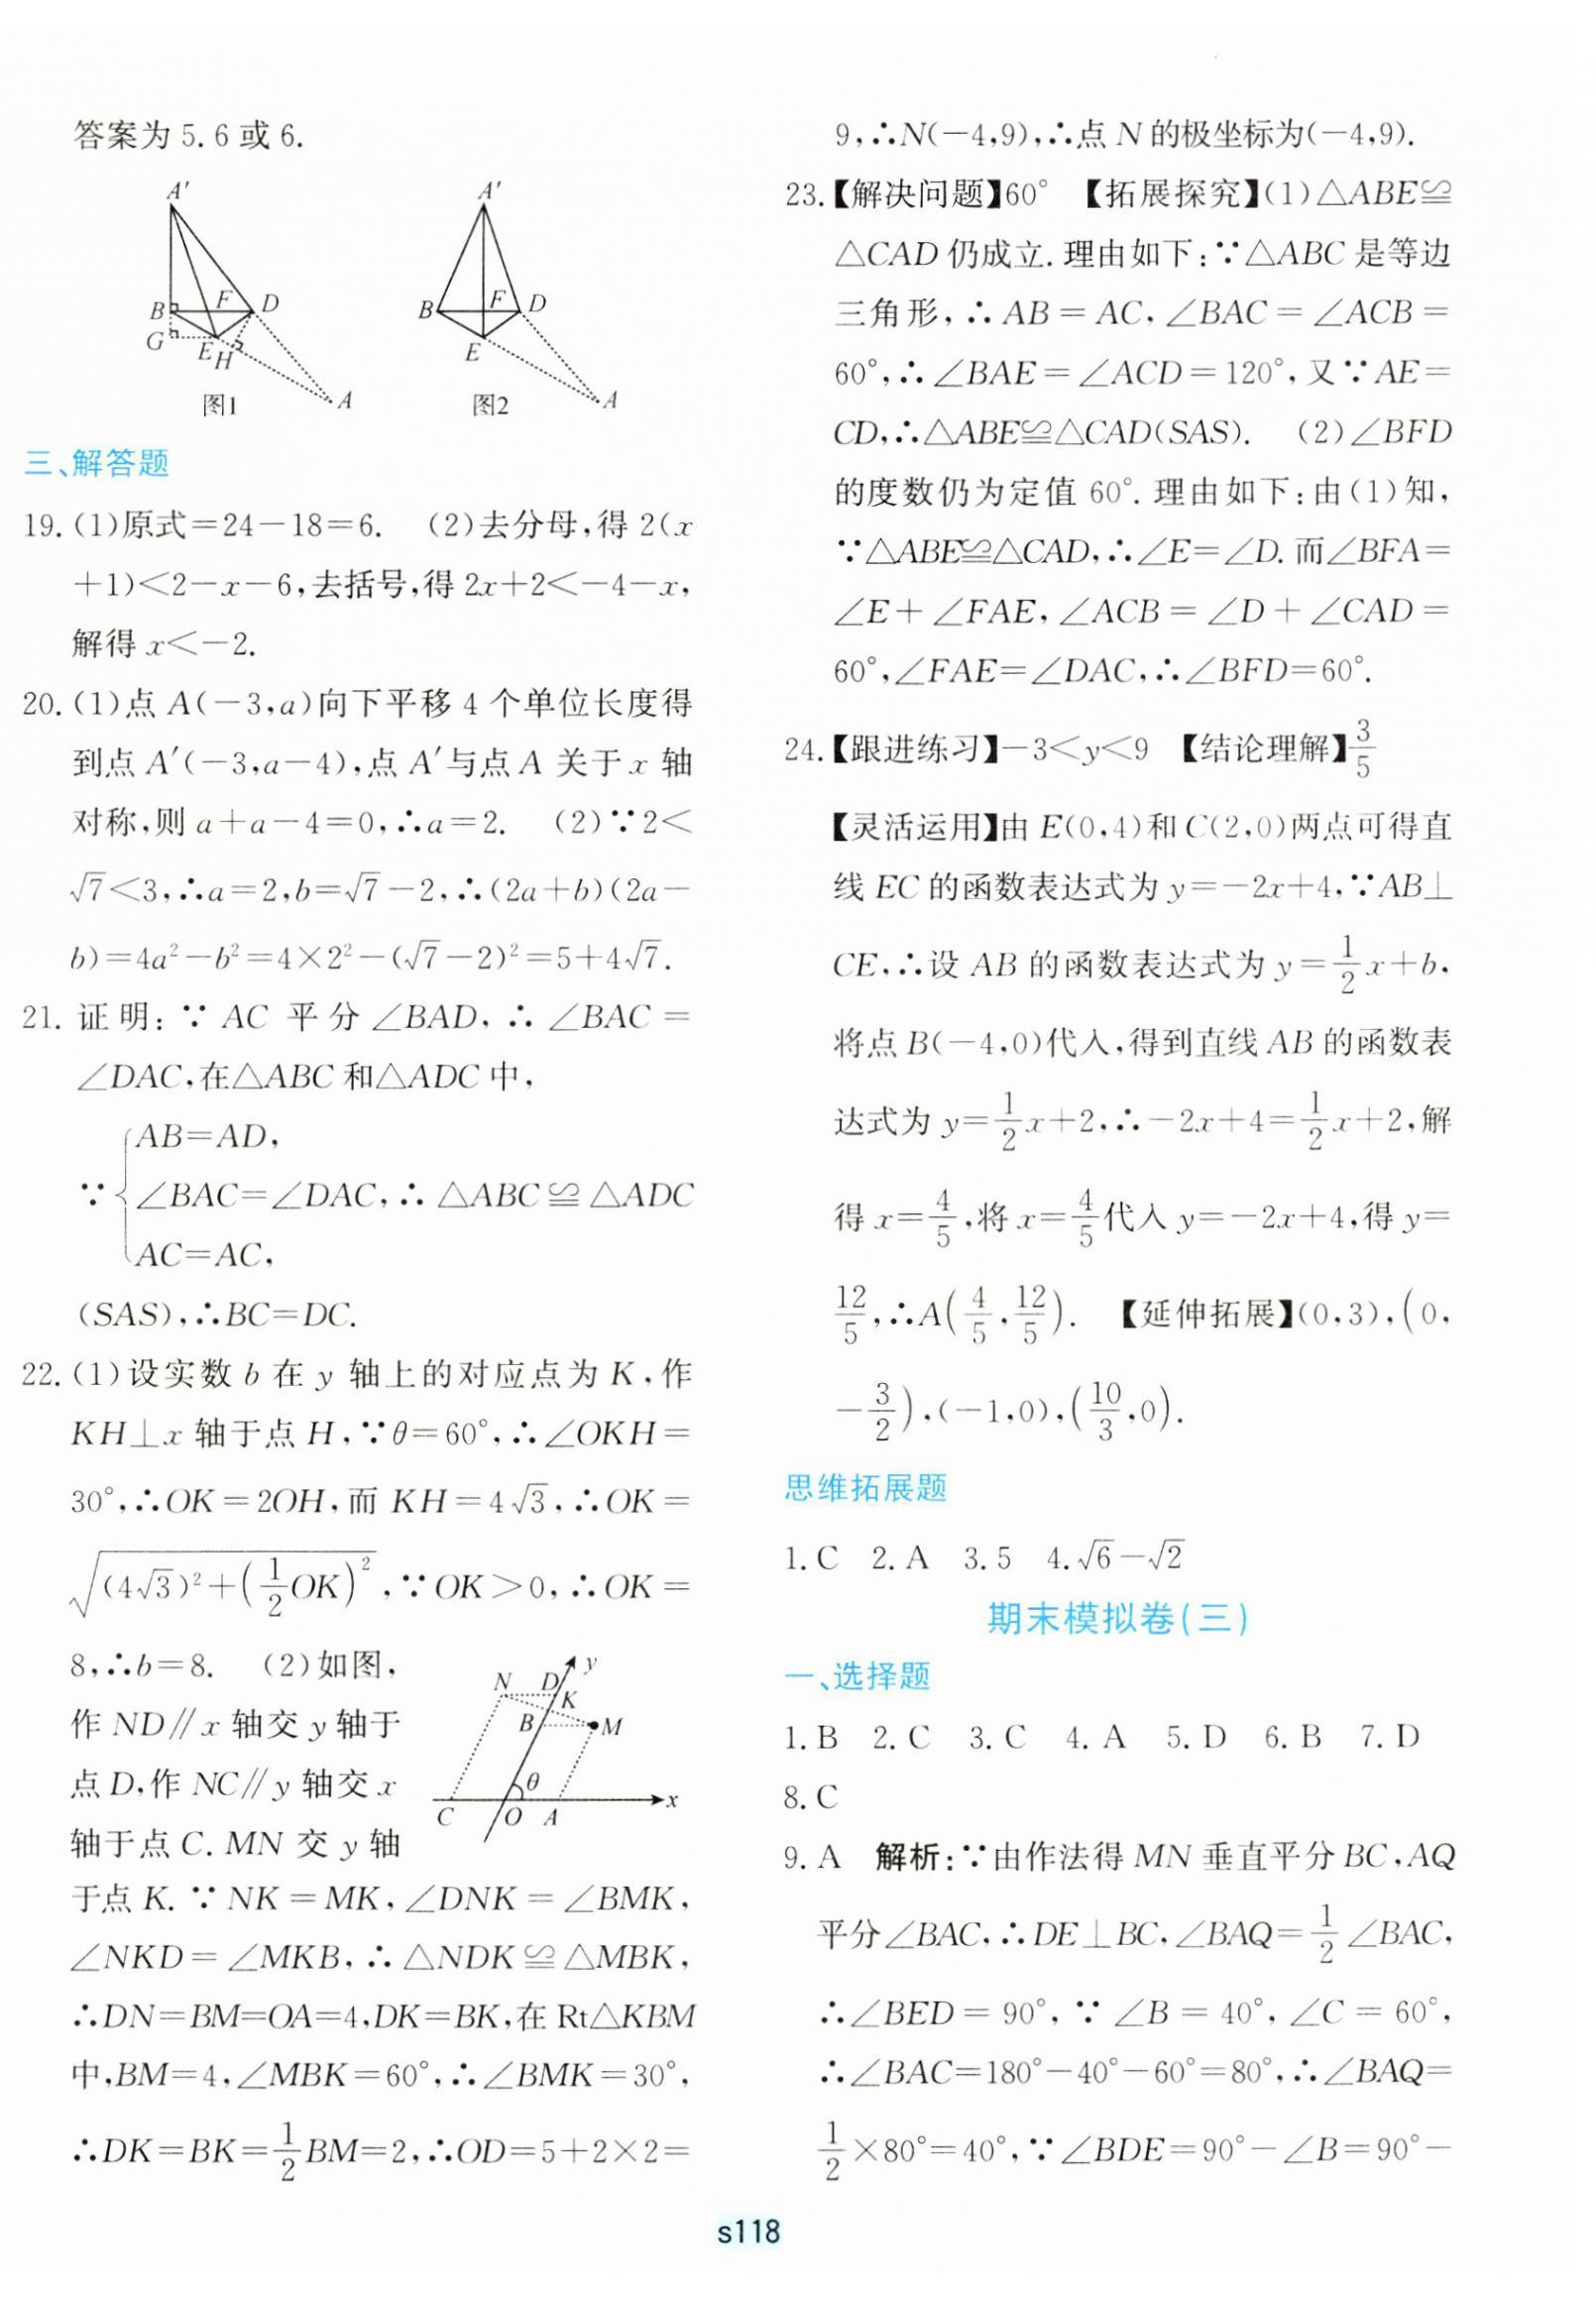 答案为 5.6 或 6.
A′
B F D
G E H
A
图1
A′
B F D
E
A
图2
三、解答题
19.(1)原式=24-18=6. (2)去分母,得 2(x
+1)<2-x-6,去括号,得 2x+2<-4-x,
解得 x<-2.
20.(1)点 A(-3,a)向下平移 4 个单位长度得
到点 A′(-3,a-4),点 A′与点 A 关于 x 轴
对称,则 a+a-4=0,∴a=2. (2)∵2<
√7<3,∴a=2,b=√7-2,∴(2a+b)(2a-
b)=4a²-b²=4×2²-(√7-2)²=5+4√7.
21. 证明:∵ AC 平分∠BAD,∴ ∠BAC=
∠DAC,在△ABC 和△ADC 中,
AB=AD,
∵{∠BAC=∠DAC,∴ △ABC≌△ADC
AC=AC,
(SAS),∴BC=DC.
22.(1)设实数 b 在 y 轴上的对应点为 K,作
KH⊥x 轴于点 H,∵θ=60°,∴∠OKH=
30°,∴OK=2OH,而 KH=4√3,∴OK=
√((4√3)²+(1/2 OK)²),∵OK>0,∴OK=
8,∴b=8. (2)如图,
作 ND∥x 轴交 y 轴于
点 D,作 NC∥y 轴交 x
轴于点 C. MN 交 y 轴
N D y
K
B M
θ
C O A x
于点 K.∵NK=MK,∠DNK=∠BMK,
∠NKD=∠MKB,∴△NDK≌△MBK,
∴DN=BM=OA=4,DK=BK,在 Rt△KBM
中,BM=4,∠MBK=60°,∴∠BMK=30°,
∴DK=BK=1/2 BM=2,∴OD=5+2×2=
9,∴N(-4,9),∴点 N 的极坐标为(-4,9).
23.【解决问题】60° 【拓展探究】(1)△ABE≌
△CAD 仍成立. 理由如下:∵△ABC 是等边
三角形,∴AB=AC,∠BAC=∠ACB=
60°,∴∠BAE=∠ACD=120°,又∵AE=
CD,∴△ABE≌△CAD(SAS). (2)∠BFD
的度数仍为定值 60°. 理由如下:由(1)知,
∵△ABE≌△CAD,∴∠E=∠D. 而∠BFA=
∠E+∠FAE,∠ACB=∠D+∠CAD=
60°,∠FAE=∠DAC,∴∠BFD=60°.
24.【跟进练习】-3<y<9 【结论理解】3/5
【灵活运用】由 E(0,4)和 C(2,0)两点可得直
线 EC 的函数表达式为 y=-2x+4,∵AB⊥
CE,∴设 AB 的函数表达式为 y=1/2 x+b,
将点 B(-4,0)代入,得到直线 AB 的函数表
达式为 y=1/2 x+2,∴-2x+4=1/2 x+2,解
得 x=4/5,将 x=4/5代入 y=-2x+4,得 y=
12/5,∴A(4/5,12/5). 【延伸拓展】(0,3),(0,
-3/2),(-1,0),(10/3,0).
思维拓展题
1.C 2.A 3.5 4.√6-√2
期末模拟卷(三)
一、选择题
1.B 2.C 3.C 4.A 5.D 6.B 7.D
8.C
9.A 解析:∵由作法得 MN 垂直平分 BC,AQ
平分∠BAC,∴DE⊥BC,∠BAQ=1/2 ∠BAC,
∴∠BED=90°,∵∠B=40°,∠C=60°,
∴∠BAC=180°-40°-60°=80°,∴∠BAQ=
1/2×80°=40°,∵∠BDE=90°-∠B=90°-
s118